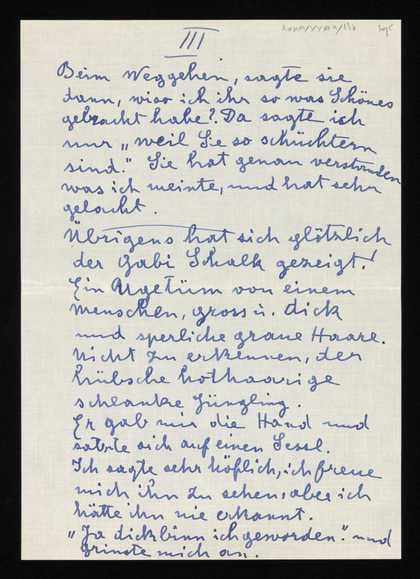 III
Beim Weggehen, sagte sie
dann, wiso ich ihr so was Schönes
gebracht habe? Da sagte ich
nur „weil Sie so schüchtern
sind." Sie hat genau verstanden
was ich meinte, und hat sehr
gelacht.
Übrigens hat sich plötzlich
der Gabi Schalk gezeigt!
Ein Ugetüm von einem
Menschen, gross u. dick
und sperliche graue Haare.
Nicht zu erkennen, der
hübsche hothaarige
schlanke Jüngling.
Er gab mir die Hand und
setzte sich auf einen Sessl.
Ich sagte sehr höflich, ich freue
mich ihn zu sehen, aber ich
hätte ihn nie erkannt.
„Ja dick binn ich geworden." und
grinste mich an.